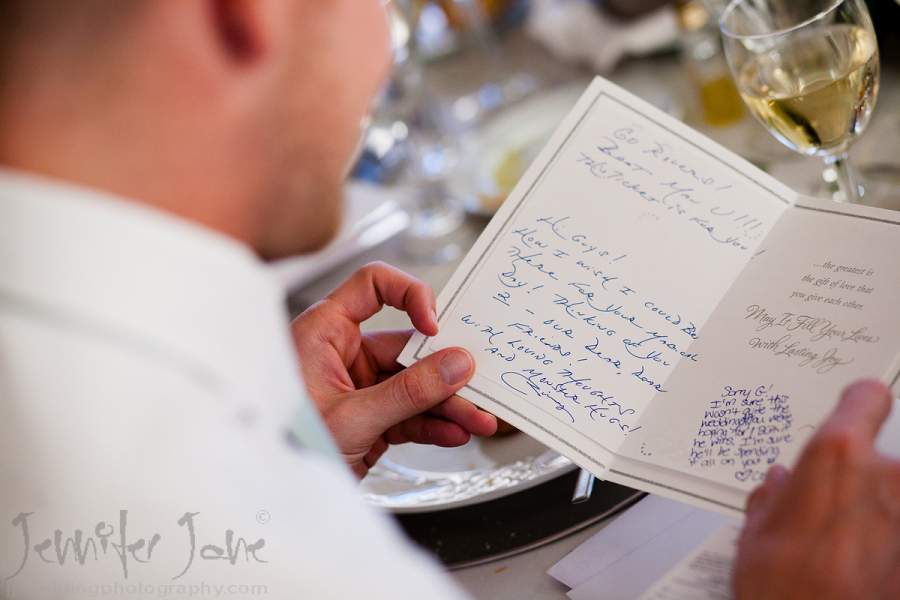 Go Rivers!
Best Man U!!!
This ticket is for you!
Hi Guys!
How I wish I could be
there for your
Day! Thinking of you
2 - our dear, dear
friends!
With loving thoughts
and monster hugs!
...the greatest is
the gift of love that
you give each other.
May It Fill Your Lives
With Lasting Joy
Sorry G!
I'm sure this
wasn't quite the
wedding you were
hoping for! But if
he wins, I'm sure
he'll be spending
it all on you!
Jennifer Jane ©
weddingphotography.com